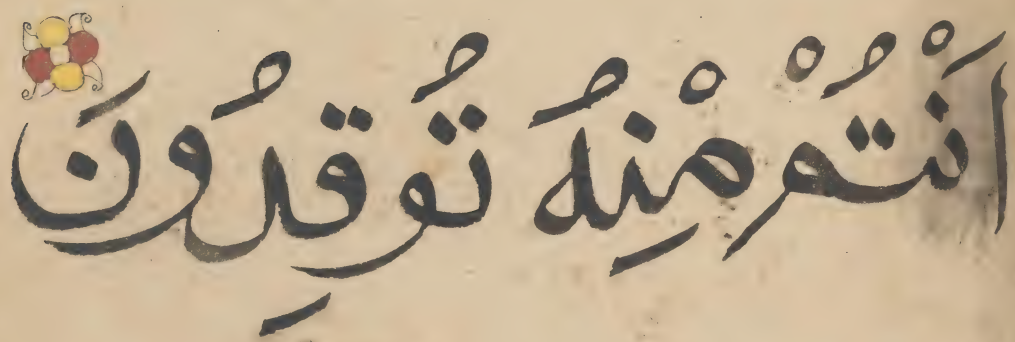 اَنْتُمْ مِنْهُ تُوقِدُونَ